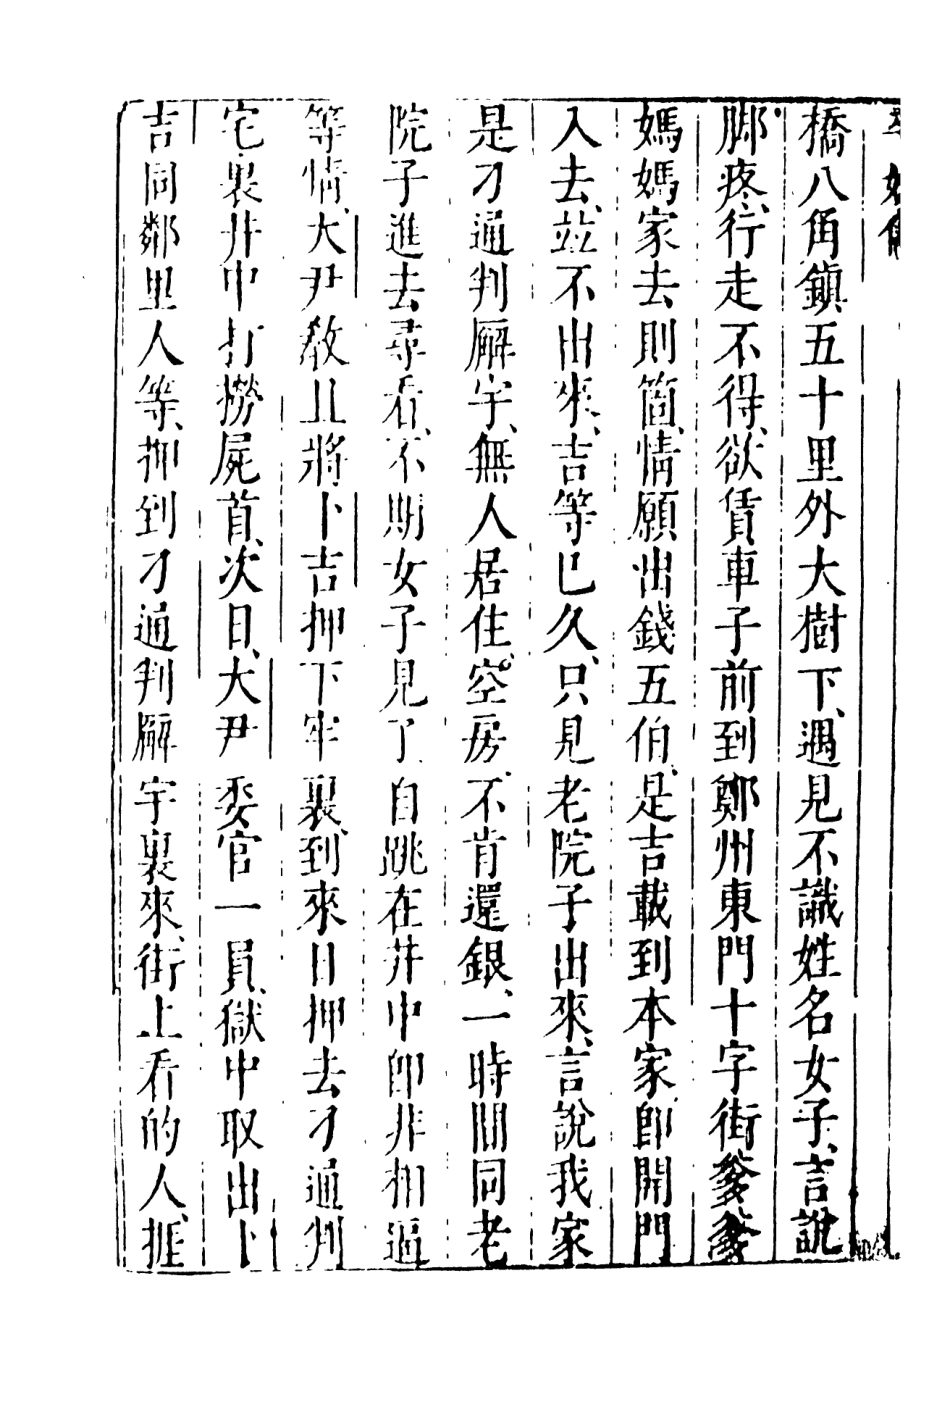 橋八角鎮五十里外大樹下、遇見不識姓名女子、言說
脚疼、行走不得、欲賃車子前到鄭州東門十字街爹爹
媽媽家去則箇、情願出錢五伯、是吉載到本家、即開門
入去、並不出來、吉等已久、只見老院子出來、言說我家
是刁通判廨宇、無人居住空房、不肯還銀、一時間同老
院子進去尋看、不期女子見了自跳在井中即非相逼
等情、大尹教且將卜吉押下牢裏、到來日押去刁通判
宅裏井中打撈屍首、次日、大尹委官一員、獄中取出卜
吉同鄰里人等、押到刁通判廨宇裏來、街上看的人、捱